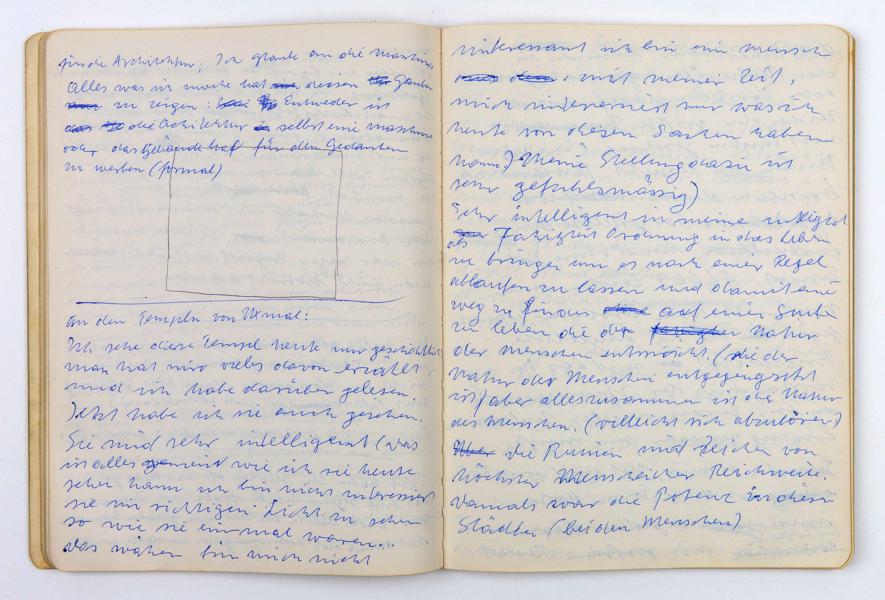 für die Architektur; Ich glaube an die maschine
Alles was ich mache hat diesen Glauben
zu zeigen: Entweder ist
die Achitektur selbst eine maschine
oder das Gebäude hat für den Gedanken
zu werben (formal)
an den Tempeln von Uxmal:
Ich sehe diese Tempel heute nur geschichtlich
man hat mir vieles davon erzählt,
und ich habe darüber gelesen.
Jetzt habe ich sie auch gesehen.
Sie sind sehr intelligent (was
ist alles gemeint wie ich sie heute
sehen kann ich bin nicht interessiert
sie im richtigen Licht zu sehen
so wie sie einmal waren..
das wäre für mich nicht
interessant ich bin ein mensch
mit meiner Zeit,
mich interessiert nur was ich
heute von diesen Sachen haben
kann) Meine Stellung dazu ist
sehr gefühlsmässig)
Sehr intelligent in meine
als Fähigkeit Ordnung in das Leben
zu bringen um es nach einer Regel
ablaufen zu lassen und damit eine
weg zu finden auf einer Seite
zu leben die der Natur
der Menschen entspricht. (die der
Natur der Menschen entgegengesetzt
ist) aber alles zusammen ist die Natur
des Menschen. (vielleicht sich abzulösen)
die Ruinen sind Zeichen von
höchster Menschlicher Reichweite.
Damals war die Potenz in diesen
Städten (bei den Menschen)